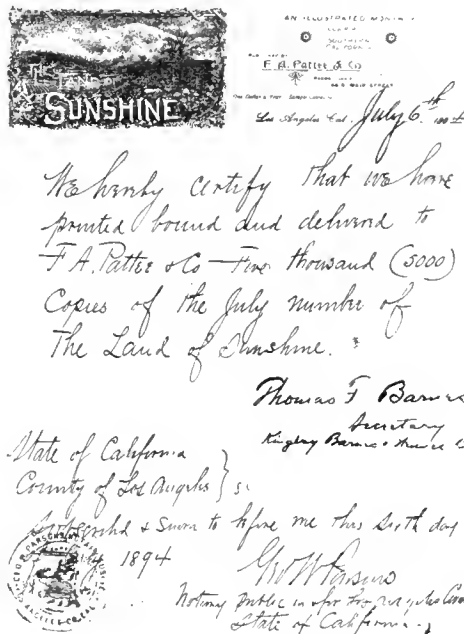 THE LAND OF
SUNSHINE
AN ILLUSTRATED MONTHLY
SOUTHERN
CALIFORNIA
F. A. Pattee & Co
Los Angeles Cal. July 6th 1894
We hereby certify that we have
printed bound and delivered to
F A. Pattee & Co - Five thousand (5000)
Copies of the July number of
The Land of Sunshine.
Thomas F Barnes
Secretary
Kingsley Barnes &
State of California
County of Los Angeles } s.
Subscribed & Sworn to before me this Sixth day
1894
Geo W Parsons
Notary public in & for Los Angeles
State of California